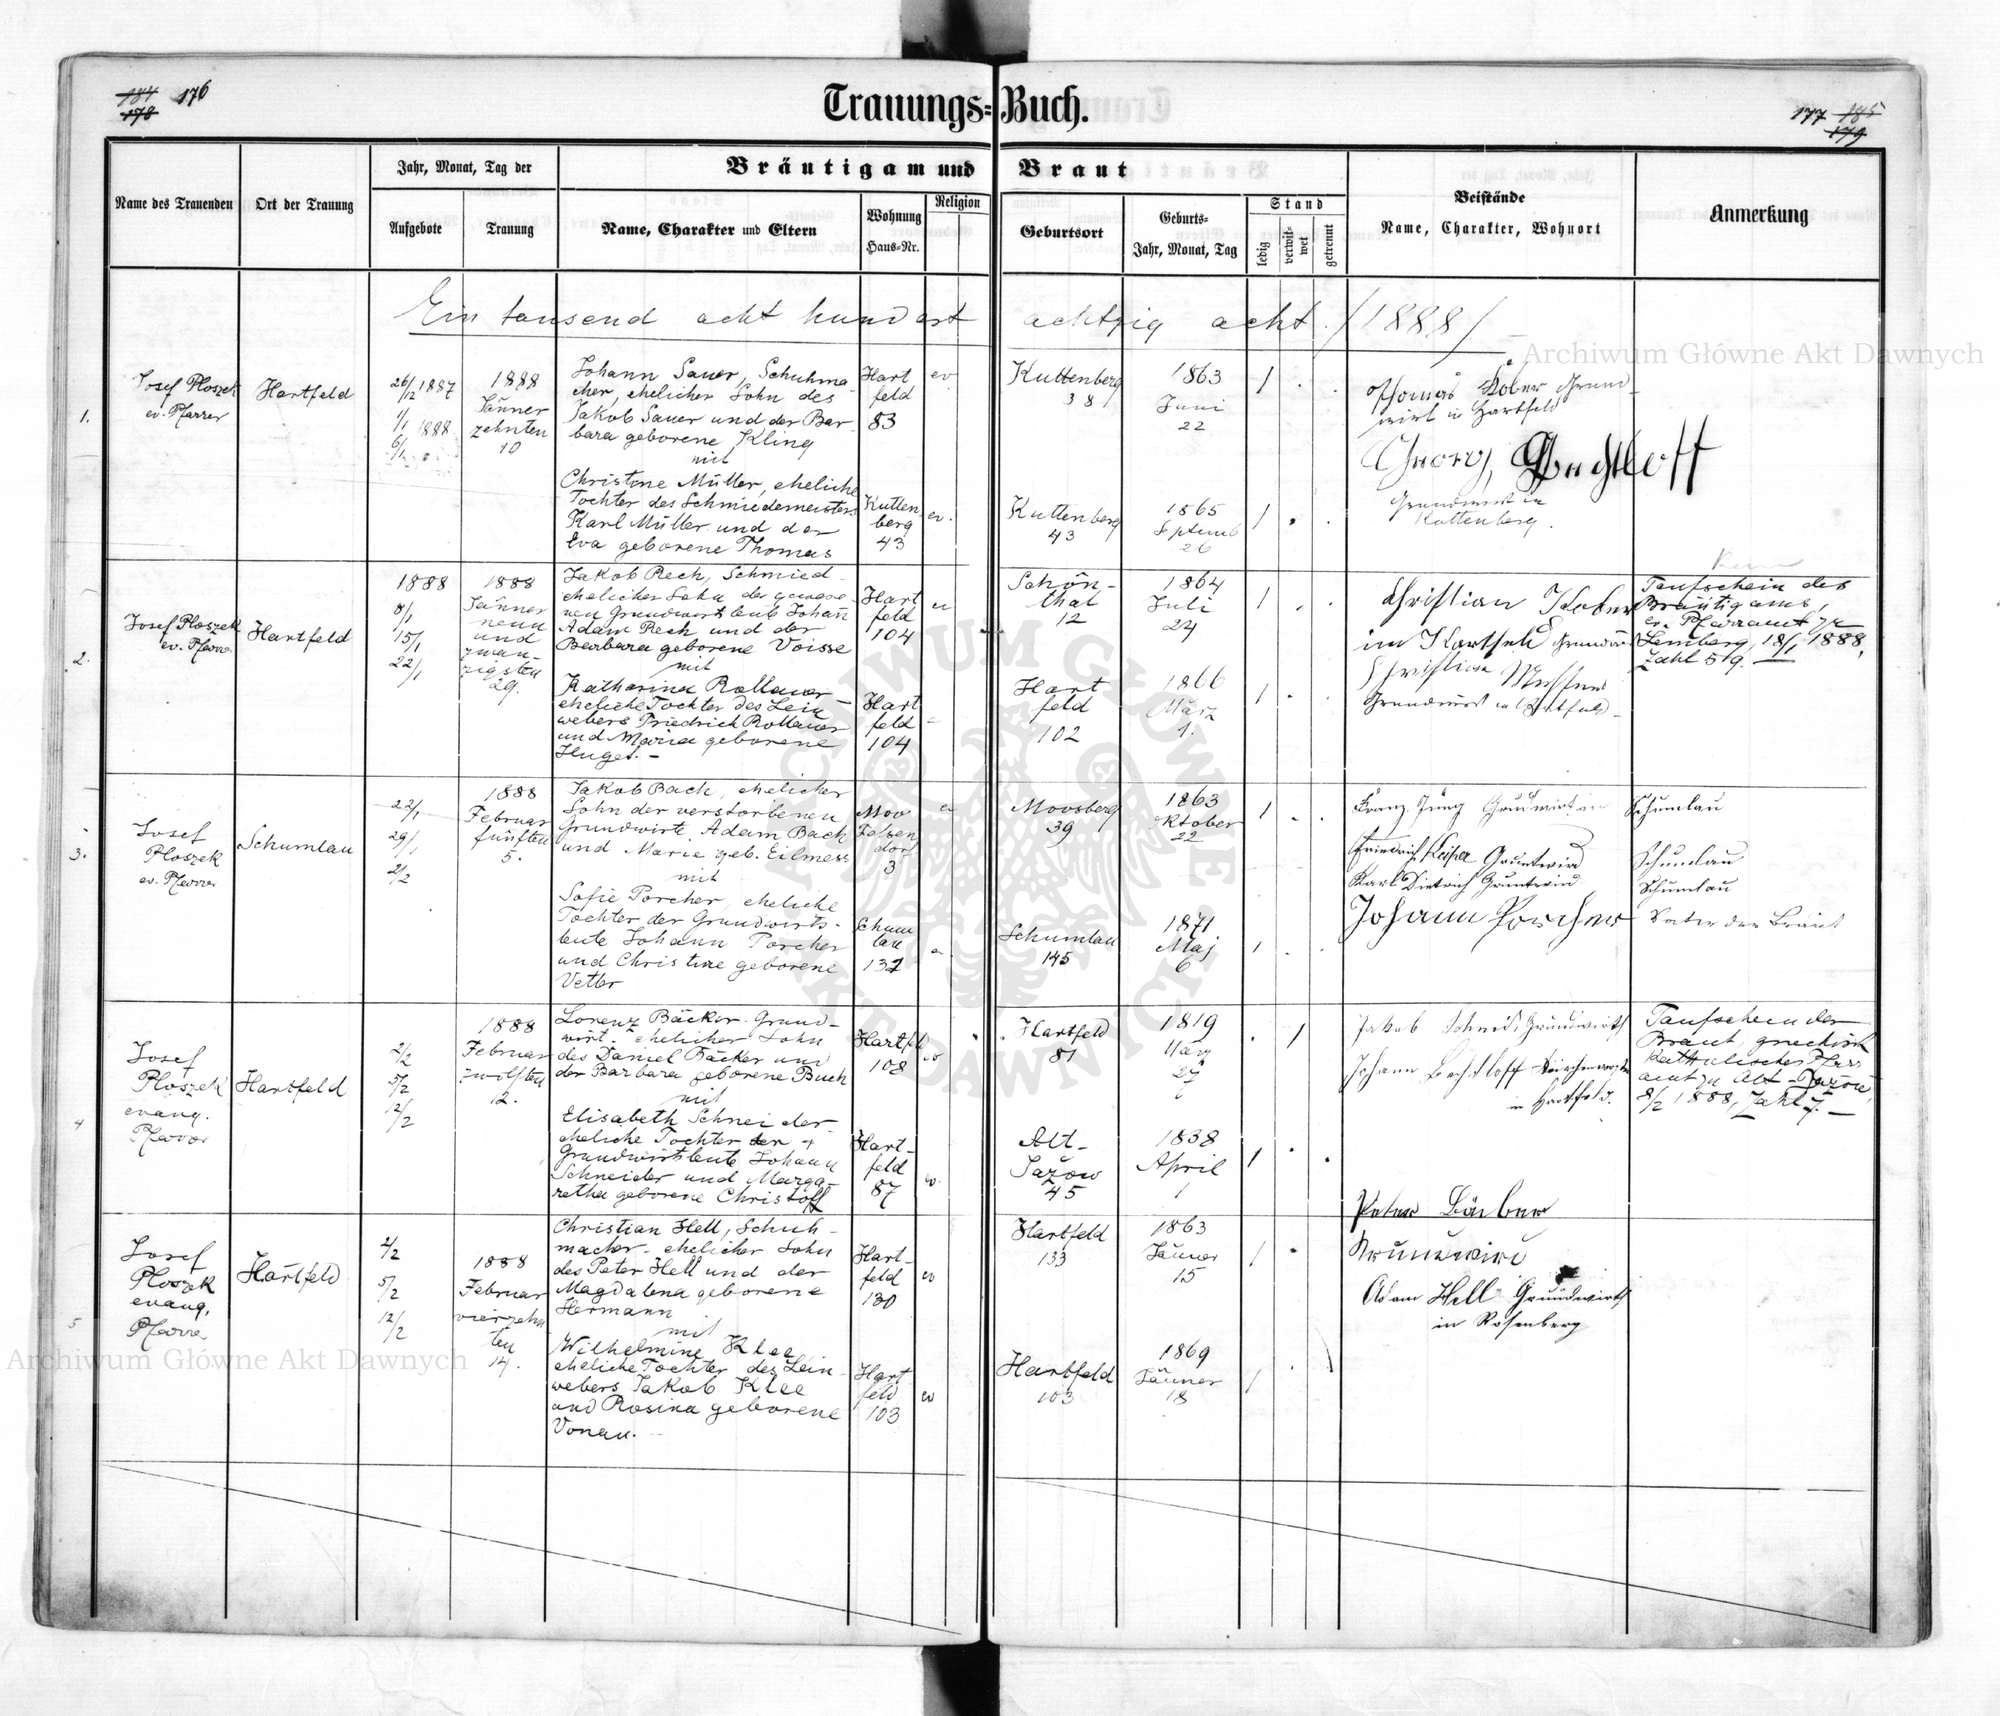 184 176
178
Trauungs=Buch.
177 185
179
Name des Trauenden
Ort der Trauung
Jahr, Monat, Tag der
Aufgebote
Trauung
Bräutigam und Braut
Name, Charakter und Eltern
Wohnung
Haus-Nr.
Religion
Geburtsort
Geburts=
Jahr, Monat, Tag
Stand
ledig
verwit=
wet
getrennt
Beistände
Name, Charakter, Wohnort
Anmerkung
Ein tausend acht hundert achtzig acht. /1888/
1.
Josef Ploszek
ev. Pfarrer
Hartfeld
26/12 1887
1/1 1888
6/1
1888
Jänner
zehnten
10
Johann Sauer, Schuhma
cher, ehelicher Sohn des
Jakob Sauer und der Bar-
bara geborene Kling
mit
Christine Müller, eheliche
Tochter des Schmiedemeisters
Karl Müller und der
Eva geborene Thomas
Hart
feld
83
ev
Kutten
berg
43
ev.
Kuttenberg
38
1863
Juni
22
Kuttenberg
43
1865
Septemb
26
Thomas Kober Grund-
wirt in Hartfeld
Georg Bechtloff
Grundwirt in
Kottenberg.
2.
Josef Ploszek
ev. Pfarrer
Hartfeld
1888
8/1
15/1
22/1
1888
Jänner
neun
und
zwan-
zigsten
29.
Jakob Rech, Schmied
ehelicher Sohn der gewese-
nen Grundwirtsleute Johann
Adam Rech und der
Barbara geborene Voisse
mit
Katharina Rollauer
eheliche Tochter des Lein
webers Friedrich Rollauer
und Maria geborene
Huget. -
Hart
feld
104
ev
Hart
feld
104
Schön-
thal
12
1864
Juli
24
Hart
feld
102
1866
März
1.
Christian Kober
im Hartfeld Grundwirt
Christian
Grundwirt in Hartfeld
Taufschein des
Bräutigams,
ev. Pfarramt zu
Lemberg, 18/1 1888,
Zahl 59. -
3.
Josef
Ploszek
ev. Pfarrer
Schumlau
22/1
29/1
2/2
1888
Februar
fünften
5.
Jakob Bach, ehelicher
Sohn der verstorbenen
Grundwirte Adam Bach
und Marie geb. Eilmess
mit
Sofie Porcher, eheliche
Tochter der Grundwirts-
leute Johann Porcher
und Christine geborene
Vetter
3
ev
Schum
lau
132
Moosberg
39
1863
Oktober
22
Schumlau
145
1871
Maj
6
Franz Jung Grundwirt in Schumlau
Friedrich Keiper Gruntwird Schumlau
Karl Dietrich Gruntwird Schumlau
Johann Porcher Vater der Braut
4
Josef
Ploszek
evang.
Pfarrer
Hartfeld
2/2
5/2
12/2
1888
Februar
zwölften
12.
Lorenz Bäcker. Grund-
wirt. ehelicher Sohn
des Daniel Bäcker und
der Barbara geborene Buch
mit
Elisabeth Schneider
eheliche Tochter der +
Grundwirtsleute Johann
Schneider und Marga-
retha geborene Christoff
Hartfeld
108
ev
Hart-
feld
87
ev.
Hartfeld
81
1819
März
27
Alt-
Jažow
45
1838
April
1
Jakob Schneid. Grundwirth
Johann Bechtloff
in Hartfeld.
Taufschein der
Braut, griechisch
katholisches Pfarr
amt zu Alt-Jažow,
8/2 1888, Zahl 7. -
5
Josef
Ploszek
evang.
Pfarrer
Hartfeld
2/2
5/2
12/2
1888
Februar
vierzehn
ten
14.
Christian Hell, Schuh-
macher. ehelicher Sohn
des Peter Hell und der
Magdalena geborene
Hermann
mit
Wilhelmine Klee
eheliche Tochter des Lein-
webers Jakob Klee
und Rosina geborene
Vonau.
Hart-
feld
130
ev
Hart
feld
103
ev
Hartfeld
133
1863
Jänner
15
Hartfeld
103
1869
Jänner
18
Peter
Grundwird
Adam Hell Grundwirth
in Rosenberg
Archiwum Główne Akt Dawnych
Archiwum Główne Akt Dawnych
ARCHIWUM GŁÓWNE AKT DAWNYCH